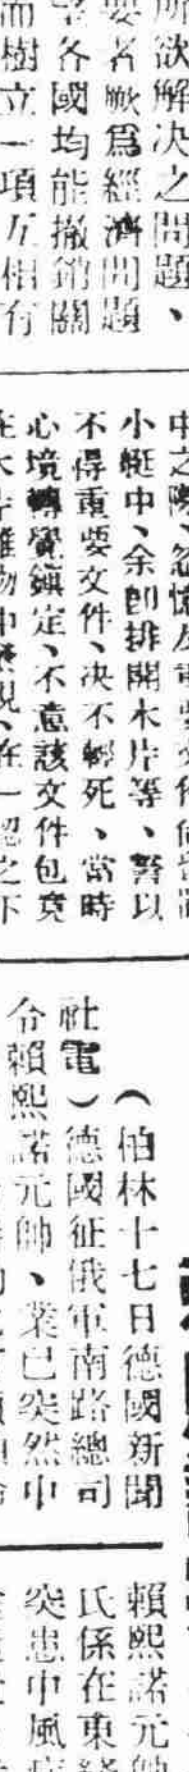 所欲解决之問題、
要者厥爲經濟問題
各國均能撤銷關
而樹立一項互相有
小艇中、余卽排開木片等、誓以
不得重要文件、决不輕死、當時
心境轉覺鎭定、不意該文件包竟
在一認之下
（伯林十七日德國新聞
社電）德國征俄軍南路總司
令賴熙諾元帥、業已突然中
賴熙諾元帥
氏係在東
突患中風